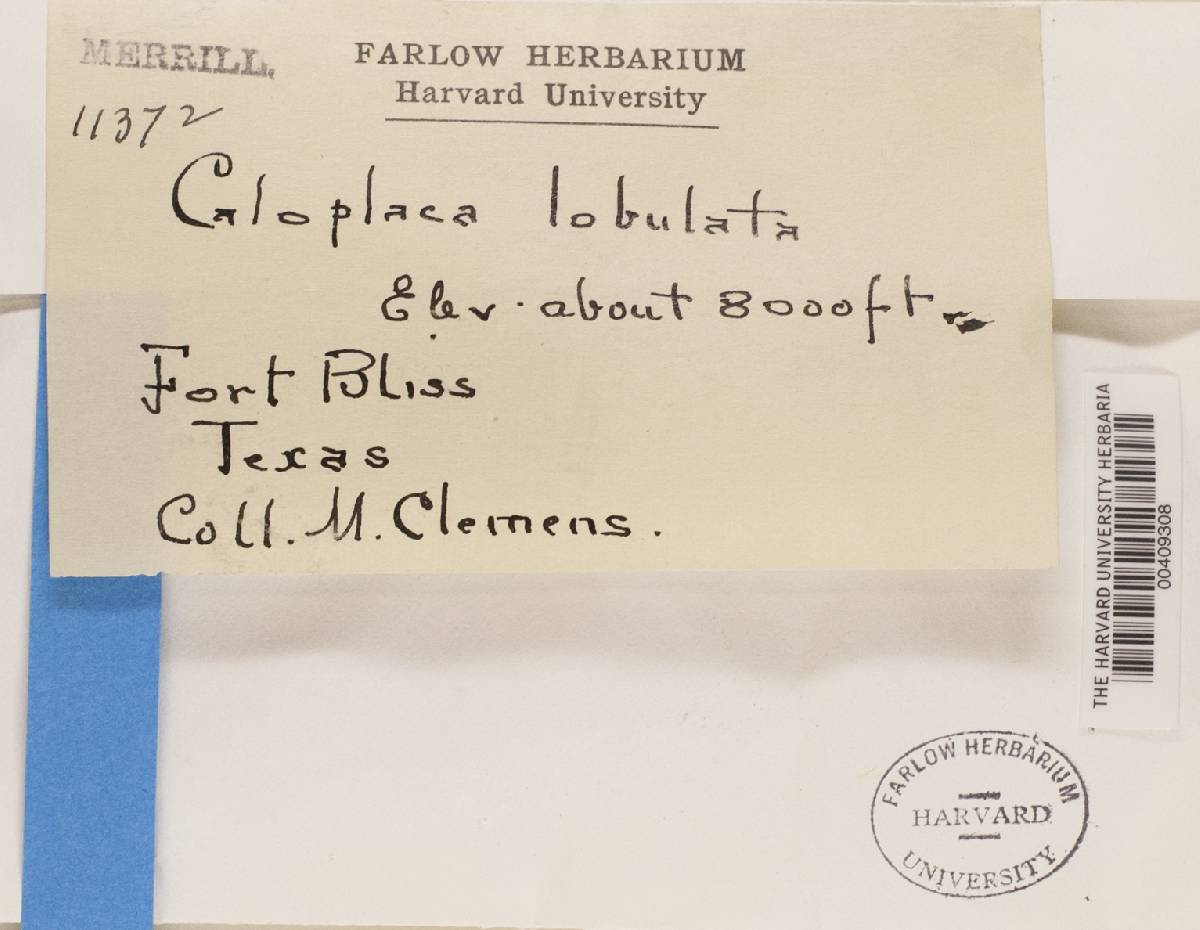 MERRILL.
FARLOW HERBARIUM
Harvard University
11372
Caloplaca lobulata
Elev. about 8000ft.
Fort Bliss
Texas
Coll. M. Clemens.
THE HARVARD UNIVERSITY HERBARIA
00409308
FARLOW HERBARIUM
HARVARD
UNIVERSITY